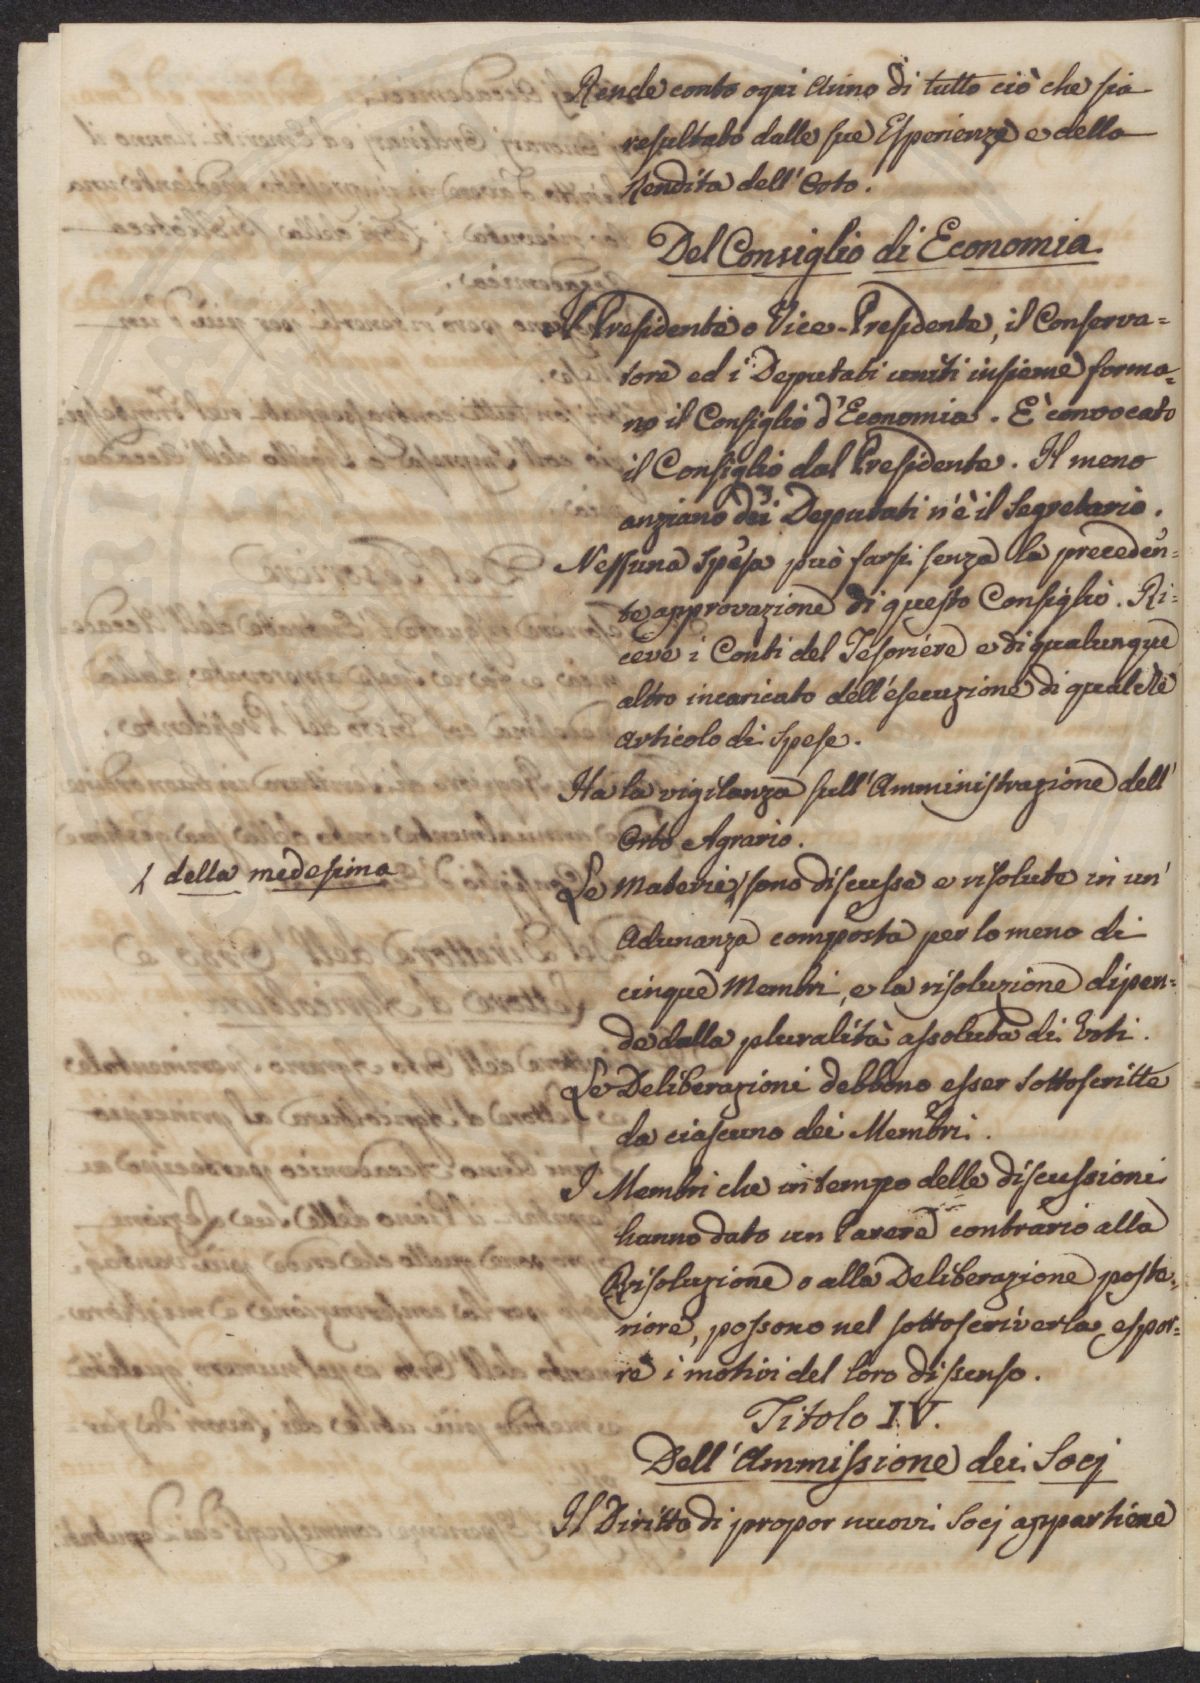 Rende conto ogni Anno di tutto ciò che sia
resultato dalle sue Esperienze e della
Rendita dell'Orto.
Del Consiglio di Economia
Il Presidente o Vice-Presidente, il Conserva=
tore ed i Deputati uniti insieme forma=
no il Consiglio d'Economia. E' convocato
il Consiglio dal Presidente. Il meno
anziano dei Deputati n'è il Segretario.
Nessuna Spesa può farsi senza la preceden=
te approvazione di questo Consiglio. Ri=
ceve i Conti del Tesoriere e di qualunque
altro incaricato dell'esecuzione di qualche
articolo di Spese.
Ha la vigilanza sull'Amministrazione dell'
Orto Agrario.
della medesima
Le Materie sono discusse e risolute in un'
Adunanza composta per lo meno di
cinque Membri, e la risoluzione dipen=
de dalla pluralità assoluta di Voti.
Le Deliberazioni debbono esser sottoscritte
da ciascuno dei Membri.
I Membri che in tempo delle discussioni
hanno dato un Parere contrario alla
Risoluzione o alla Deliberazione poste=
riore, possono nel sottoscriverla espor=
re i motivi del loro dissenso.
Titolo IV.
Dell'Ammissione dei Socj
Il Diritto di propor nuovi Socj appartiene